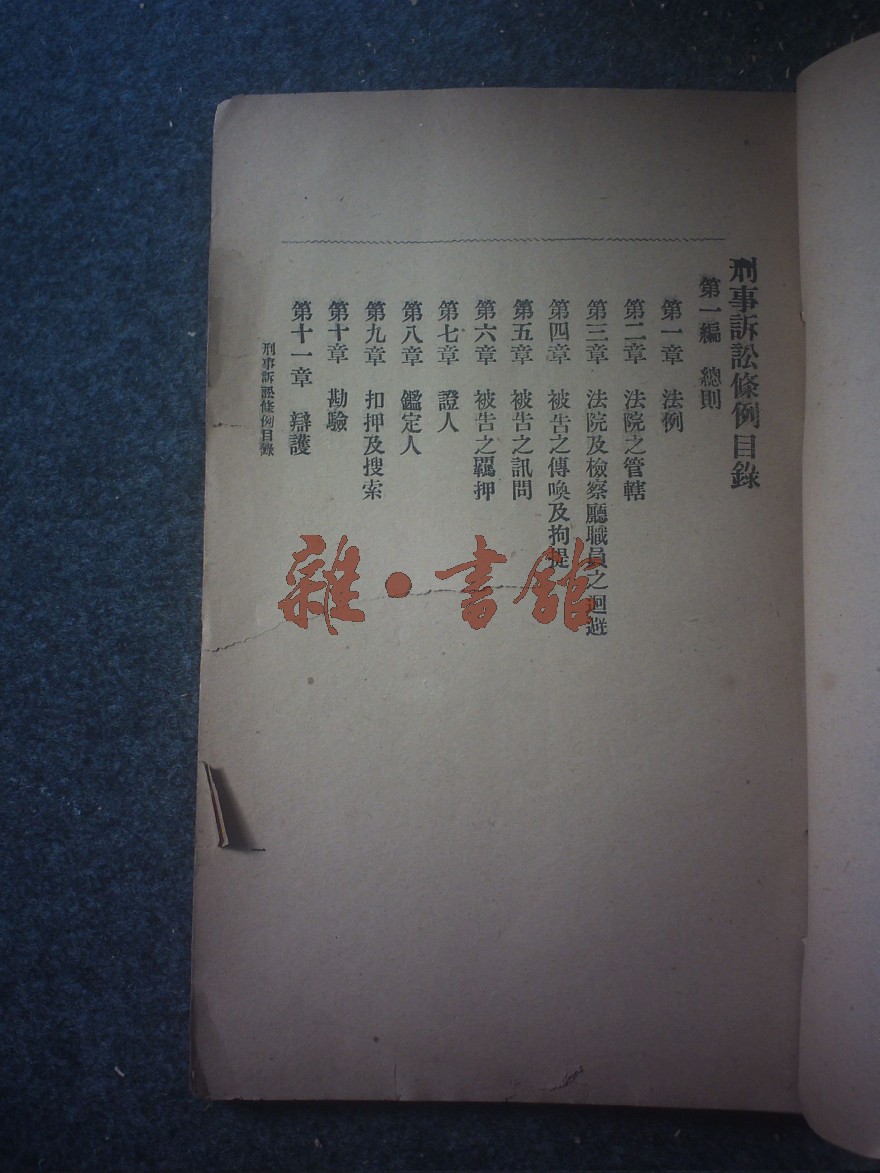 刑事訴訟條例目錄
第一編　總則
第一章　法例
第二章　法院之管轄
第三章　法院及檢察廳職員之迴避
第四章　被告之傳喚及拘提
第五章　被告之訊問
第六章　被告之羈押
第七章　證人
第八章　鑑定人
第九章　扣押及搜索
第十章　勘驗
第十一章　辯護
刑事訴訟條例目錄
雜·書館